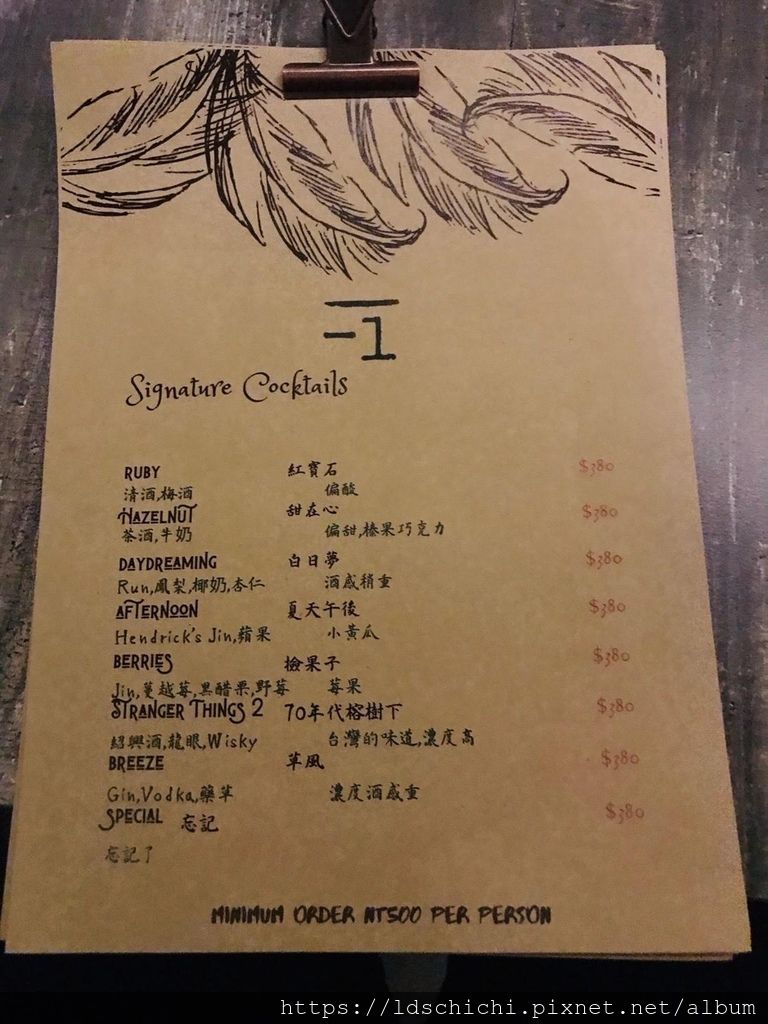 -1
Signature Cocktails
RUBY 紅寶石 $380
清酒,梅酒 偏酸
HAZELNUT 甜在心 $380
茶酒,牛奶 偏甜,榛果巧克力
DAYDREAMING 白日夢 $380
Run,鳳梨,椰奶,杏仁 酒感稍重
AFTERNOON 夏天午後 $380
Hendrick's Jin,蘋果 小黃瓜
BERRIES 撿果子 $380
Jin,蔓越莓,黑醋栗,野莓 莓果
STRANGER THINGS 2 70年代榕樹下 $380
紹興酒,龍眼,Wisky 台灣的味道,濃度高
BREEZE 草風 $380
Gin,Vodka,藥草 濃度酒感重
SPECIAL 忘記 $380
忘記了
MINIMUM ORDER NT500 PER PERSON
https://ldschichi.pixnet.net/album